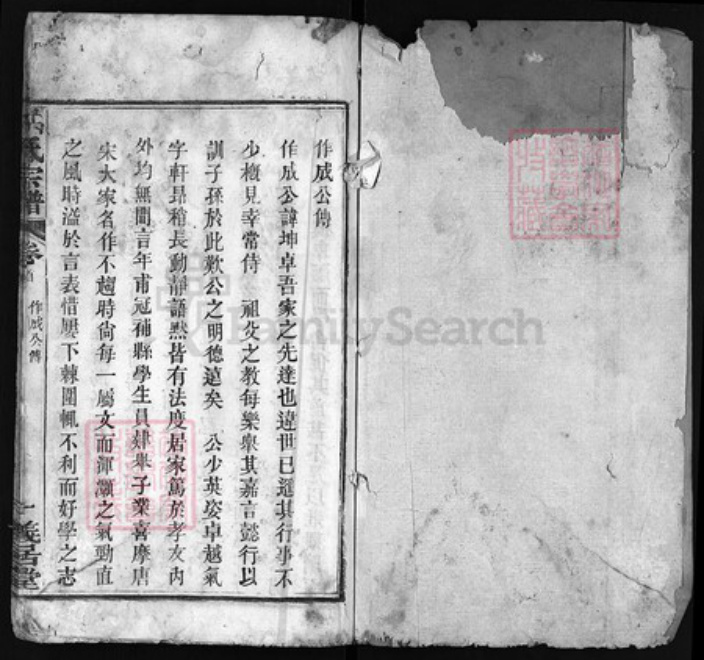 作成公傳
作成公諱坤卓吾家之先達也違世已遠其行事不
少概見幸常侍 祖父之教每樂舉其嘉言懿行以
訓子孫於此歎公之明德遠矣 公少英姿卓越氣
宇軒昂稍長動靜語黙皆有法度居家篤於孝友内
外均無間言年甫冠補縣學生員肄舉子業喜摩唐
宋大家名作不趨時尚每一屬文而渾灝之氣勁直
之風時溢於言表惜屢下棘圍輒不利而好學之志
氏宗譜
卷首
作成公傳
一
義居堂
FamilySearch